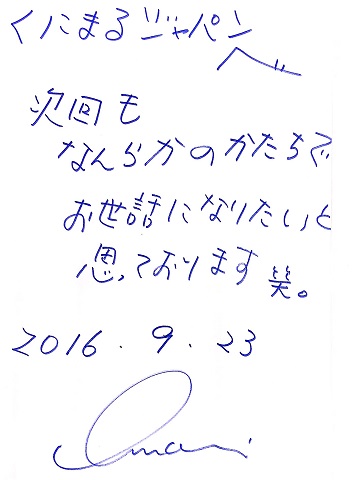 くにまるジャパン
へ
次回も
なんらかのかたちで
お世話になりたいと
思っております笑。
2016.9.23